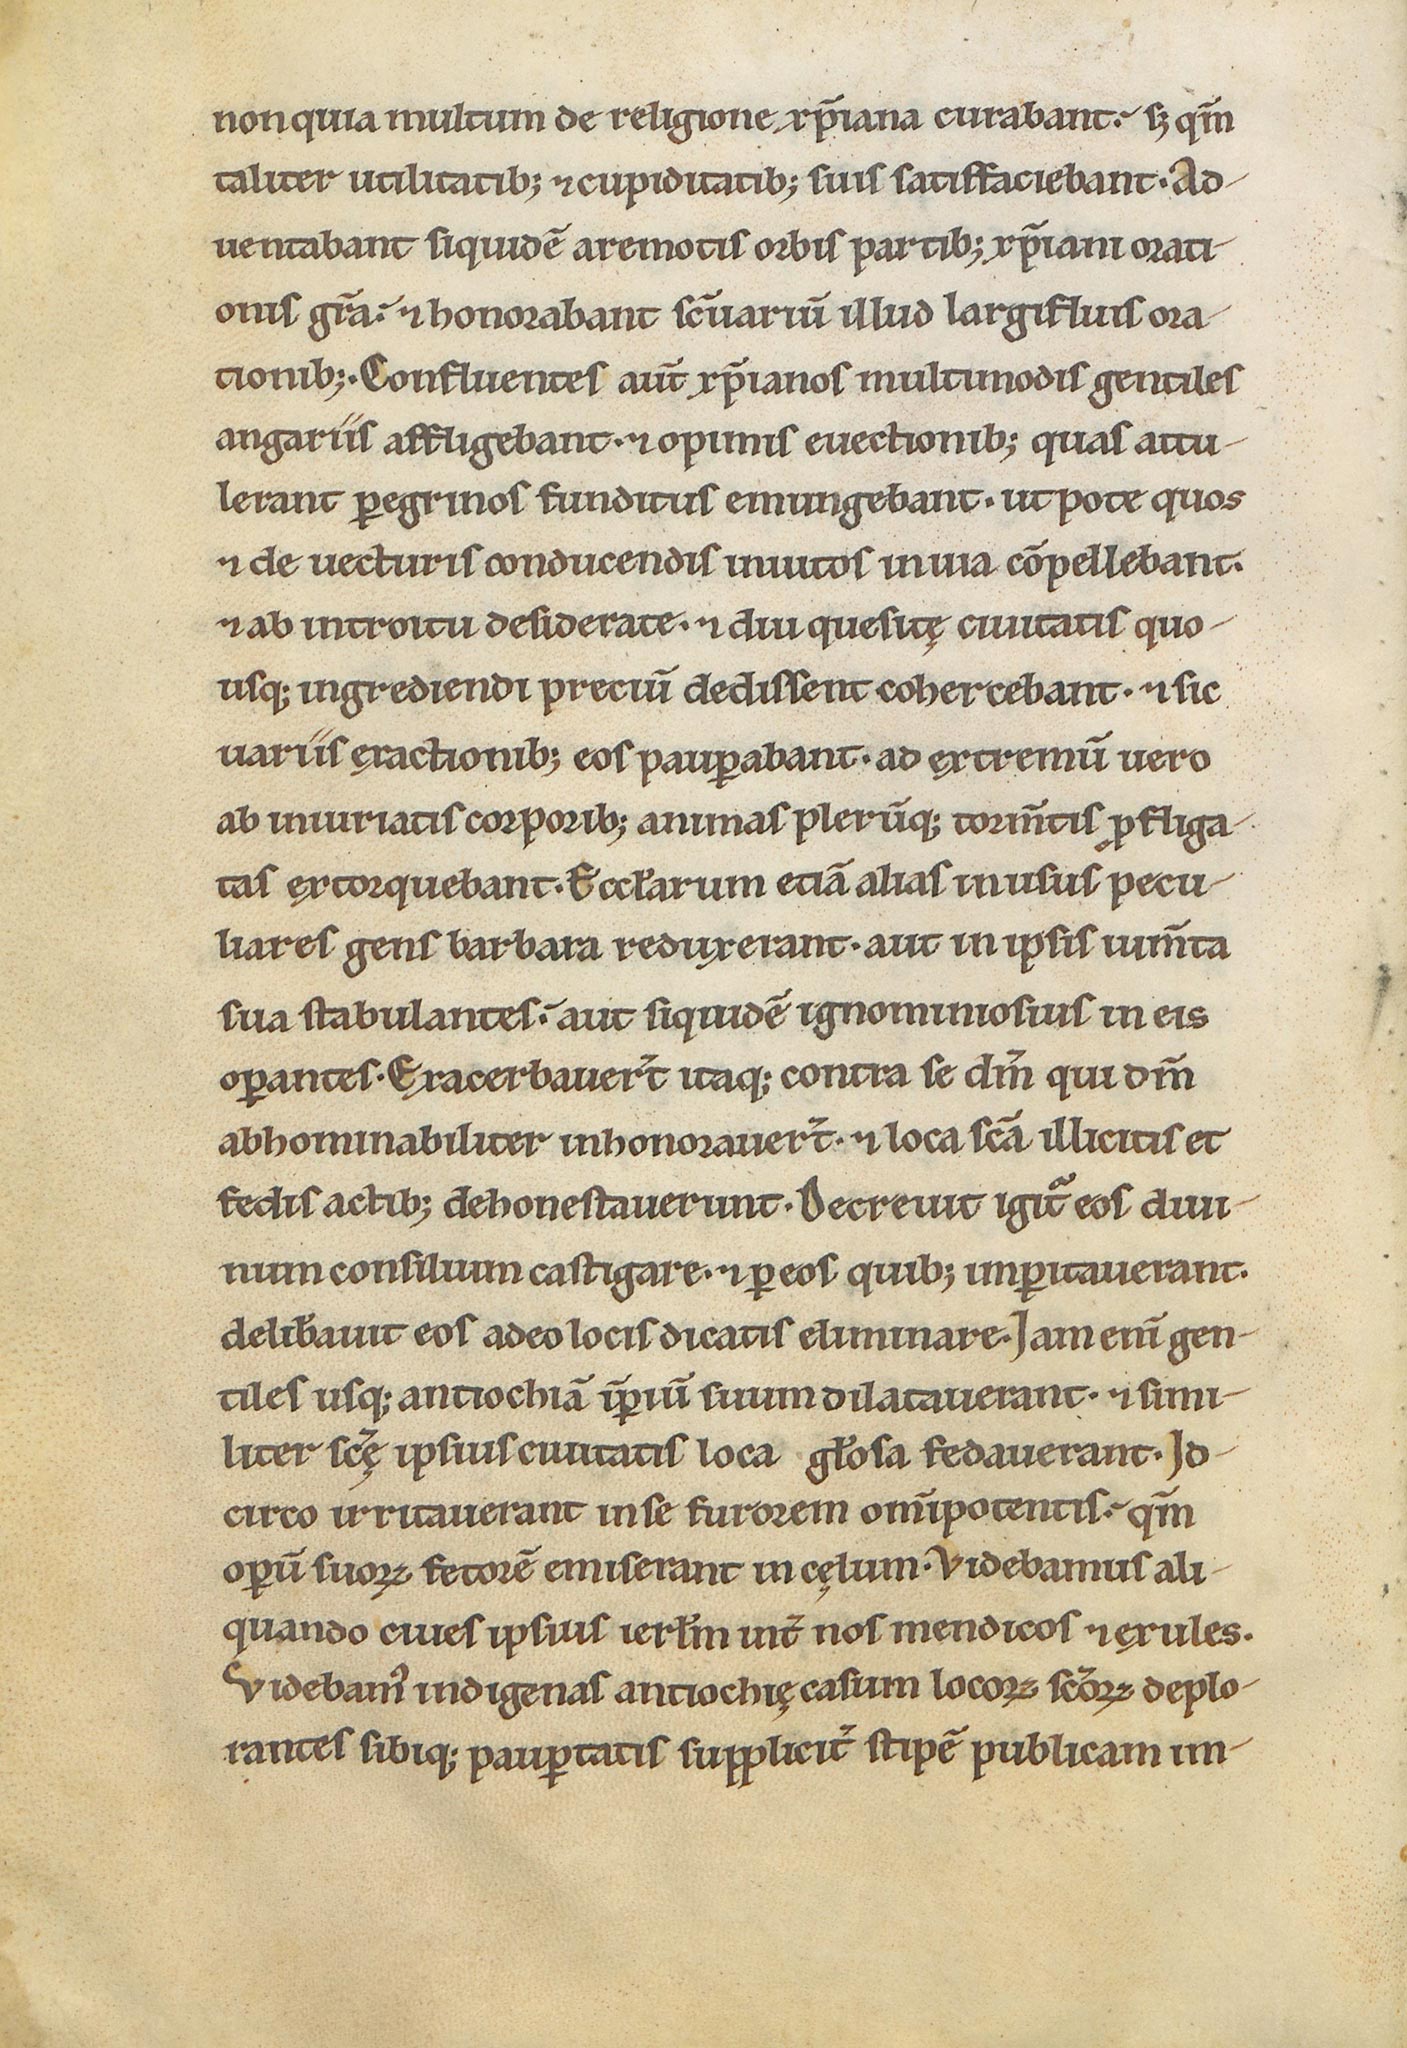 non quia multum de religione xp̄iana curabant. sꝫ qm̄
taliter utilitatib; ⁊ cupiditatib; suis satiffaciebant. Ad-
uentabant siquidē aremotis orbis partib; xp̄iani orati-
onis gr̄a. ⁊ honorabant sc̄uariū illud largifluis ora-
tionib;. Confluentes aut̄ xp̄ianos multimodis gentiles
angariis affligebant. ⁊ opimis euectionib; quas attu-
lerant ꝑegrinos funditus emungebant. ut pote quos
⁊ de uecturis conducendis inuitos in uia cōpellebant.
⁊ ab introitu desiderate. ⁊ diu quesitę ciuitatis quo-
usq; ingrediendi preciū dedissent cohercebant. ⁊ sic
uariis ęxactionib; eos pauꝑabant. ad ęxtremū uero
ab iniuriatis corporib; animas plerūq; torm̄tis ꝓfliga-
tas ęxtorquebant. Eccl̄arum etiā alias in usus pecu-
liares gens barbara reduxerant. aut in ipsis ium̄ta
sua stabulantes. aut siquidē ignominiosius in eis
oꝑantes. Exacerbauer̄t itaq; contra se dm̄ qui dm̄
abhominabiliter inhonorauer̄t. ⁊ loca sc̄a illicitis et
fedis actib; dehonestauerunt. Decreuit igit̄ eos diui-
num consilium castigare. ⁊ ꝑ eos quib; imꝑitauerant.
delib̄auit eos adeo locis dicatis eliminare. Jam eni̅ gen-
tiles usq; antiochiā īꝑiū suum dilatauerant. ⁊ simi-
liter sc̄ę ipsius ciuitatis loca gl̄osa fedauerant. Jd-
circo irritauerant in se furorem om̄ipotentis. qm̄
oꝑū suoꝝ fetorē emiserant in cęlum. Videbamus ali-
quando ciues ipsius ierl̄m int̄ nos mendicos ⁊ ęxules.
Videbamꝰ indigenas antiochię casum locoꝝ sc̄oꝝ deplo-
rantes sibiq; pauꝑtatis supplicit̄ stipē publicam im-